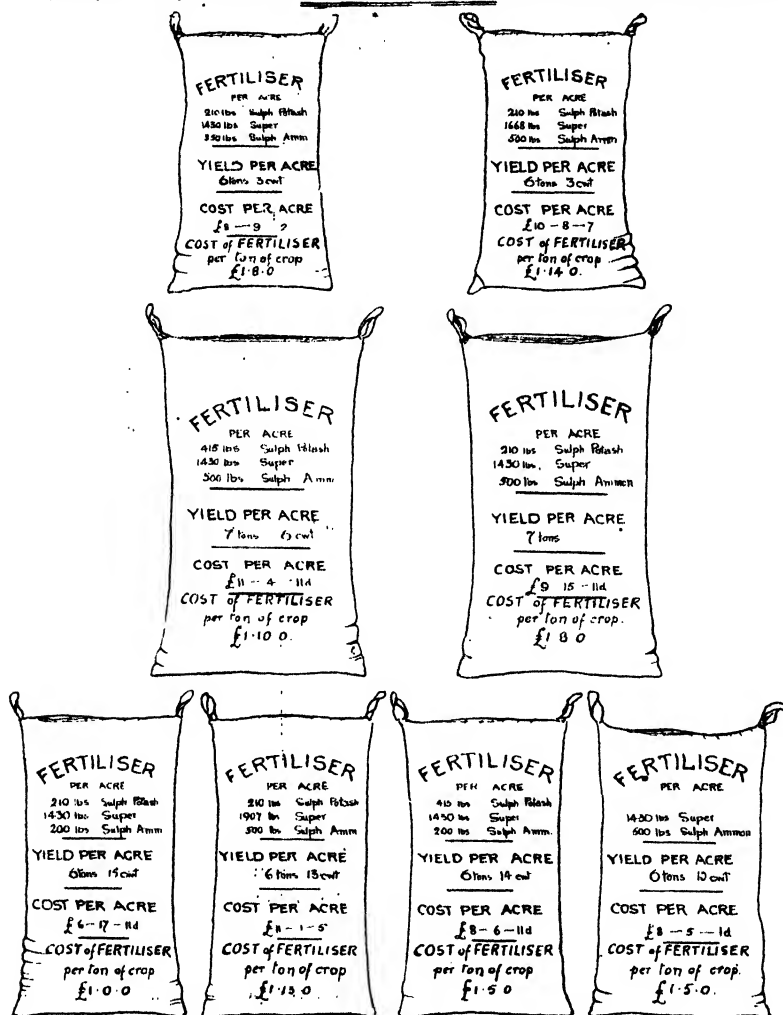 FERTILISER
PER ACRE
210 lbs Sulph Potash
1430 lbs Super
350 lbs Sulph Amm
YIELD PER ACRE
6 tons 3 cwt
COST PER ACRE
£8 — 9
COST of FERTILISER
per ton of crop
£1·8·0
FERTILISER
PER ACRE
210 lbs Sulph Potash
1668 lbs Super
500 lbs Sulph Amm
YIELD PER ACRE
6 tons 3 cwt
COST PER ACRE
£10 – 8 – 7
COST of FERTILISER
per ton of crop
£1·14 0.
FERTILISER
PER ACRE
415 lbs Sulph Potash
1430 lbs Super
500 lbs Sulph Amm
YIELD PER ACRE
7 tons cwt
COST PER ACRE
£11 – 4 – 11d
COST of FERTILISER
per ton of crop
£1·10 0.
FERTILISER
PER ACRE
210 lbs Sulph Potash
1430 lbs. Super
500 lbs Sulph Ammon
YIELD PER ACRE
7 tons
COST PER ACRE
£9 15 – 11d
COST of FERTILISER
per ton of crop.
£1 8 0
FERTILISER
PER ACRE
210 lbs Sulph Potash
1430 lbs. Super
200 lbs Sulph Amm
YIELD PER ACRE
6 tons cwt
COST PER ACRE
£6 – 17 – 11d
COST of FERTILISER
per ton of crop
£1·0·0
FERTILISER
PER ACRE
210 lbs Sulph Potash
1907 lbs Super
500 lbs Sulph Amm
YIELD PER ACRE
6 tons 13 cwt
COST PER ACRE
£11 – 1 – 5
COST of FERTILISER
per ton of crop
£1·13 0
FERTILISER
PER ACRE
415 lbs Sulph Potash
1430 lbs Super
200 lbs Sulph Amm.
YIELD PER ACRE
6 tons 14 cwt
COST PER ACRE
£8 – 6 – 11d
COST of FERTILISER
per ton of crop
£1·5 0
FERTILISER
PER ACRE
1430 lbs Super
500 lbs Sulph Ammon
YIELD PER ACRE
6 tons cwt
COST PER ACRE
£8 – 5 – 1d
COST of FERTILISER
per ton of crop.
£1·5·0.